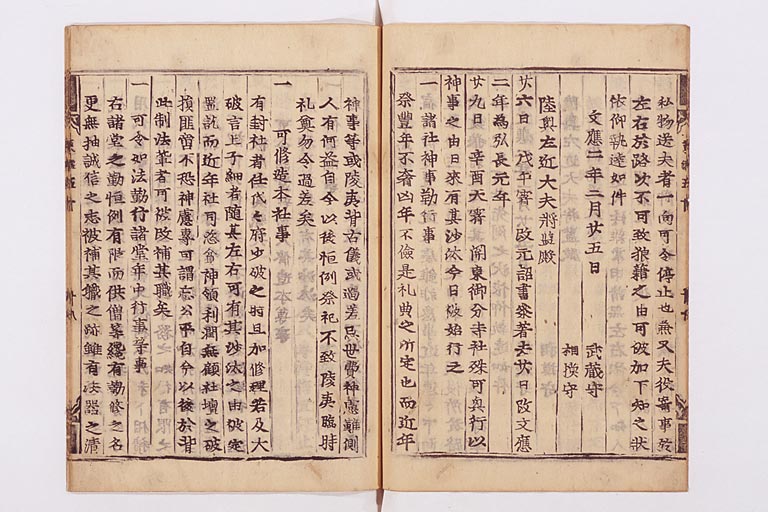 私物送夫者一向可令停止也兼又夫役寄事於
左右於路次不可致狼藉之由可被加下知之状
依仰執達如件
文應二年二月廿五日
武蔵守
相模守
陸奥左近大夫将監殿
廿六日 戊午 霽 改元詔書参著去廿日改文應
二年為弘長元年
廿九日 辛酉 天霽 関東御分寺社殊可奥行以
神事之由日来有其沙汰今日被始行之
一諸社神事勤行事
祭豊年不奢凶年不儉是礼典之所定也而近年
神事等或陵夷背古儀或過差忘世費神慮難測
人有何益自今以後恒例祭祀不致陵夷臨時
礼奠勿令過差矣
一可修造本社事
有封社者任代々府少破之時且加修理若及大
破言上子細者随其左右可有其沙汰之由被定
置訖而近年社司恣貪神領利潤無顧社壇之破
損匪啻不恐神慮専可謂忘公平自今以後於背
此制法輩者可被改補其職矣
一可令如法勤行諸堂年中行事等事
右諸堂之勤恒例有限而供僧等纔有勤修之名
更無抽誠信之志被補其職之跡雖有法器之清